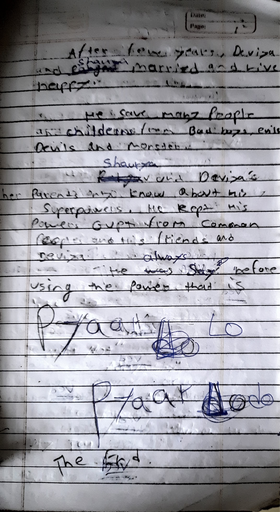 Date:
Page:
After few years, Deviya
and Shaurya married and live
happy.
He save many People
and childeans from Bad boys, evils
Devils and monster
Shaurya
and Deviya's
her Parents into know about his
Superpowers. He Kept his
Powers Gupt from Common
People and his friends and
Deviya always
He was before
using the Power that is
Pyaar Lo
Pyaar Lodo
The End.